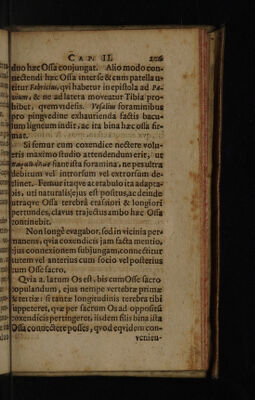 CAP. II.
duo hæc Ossa conjungat. Alio modo con-
nectendi hæc Ossa inter se & cum patella u-
titur Fabricius, qui habetur in epistola ad Pa-
& ne ad latera moveatur Tibia pro-
hibet, qvem vide sis. Vesalius foraminibus
pro pingvedine exhaurienda factis bacu-
lum ligneum indit, ac ita bina hæc ossa fir-
mat.
Si femur cum coxendice nectere volu-
eris maximo studio attendendum erit, ut
fiant ista foramina, ne ps ultra
debitum vel introrsum vel extrorsum de-
tinet. Femur itaqve acetabulo ita adapta-
bis, uti naturalis ejus est positus, ac deinde
utraqve Ossa terebra crassiori & longiori
pertundes, clavus trajectus ambo hæc Ossa
continebit.
Non longè evagabor, sed in vicinia per-
manens, qvia coxendicis jam facta mentio,
ejus connexionem subjungam, connectitur
autem vel anterius cum socio vel posterius
cum Osse sacro.
Qvia a. latum Os est, bis cum Osse sacro
copulandum, ejus nempe vertebræ primæ
& tertiæ: si tantæ longitudinis terebra tibi
suppeteret, qvæ per sacrum Os ad oppositū
coxendicis pertingeret, iisdem filis bina ista
Ossa connectere posses, qvod eqvidem con-
venien-